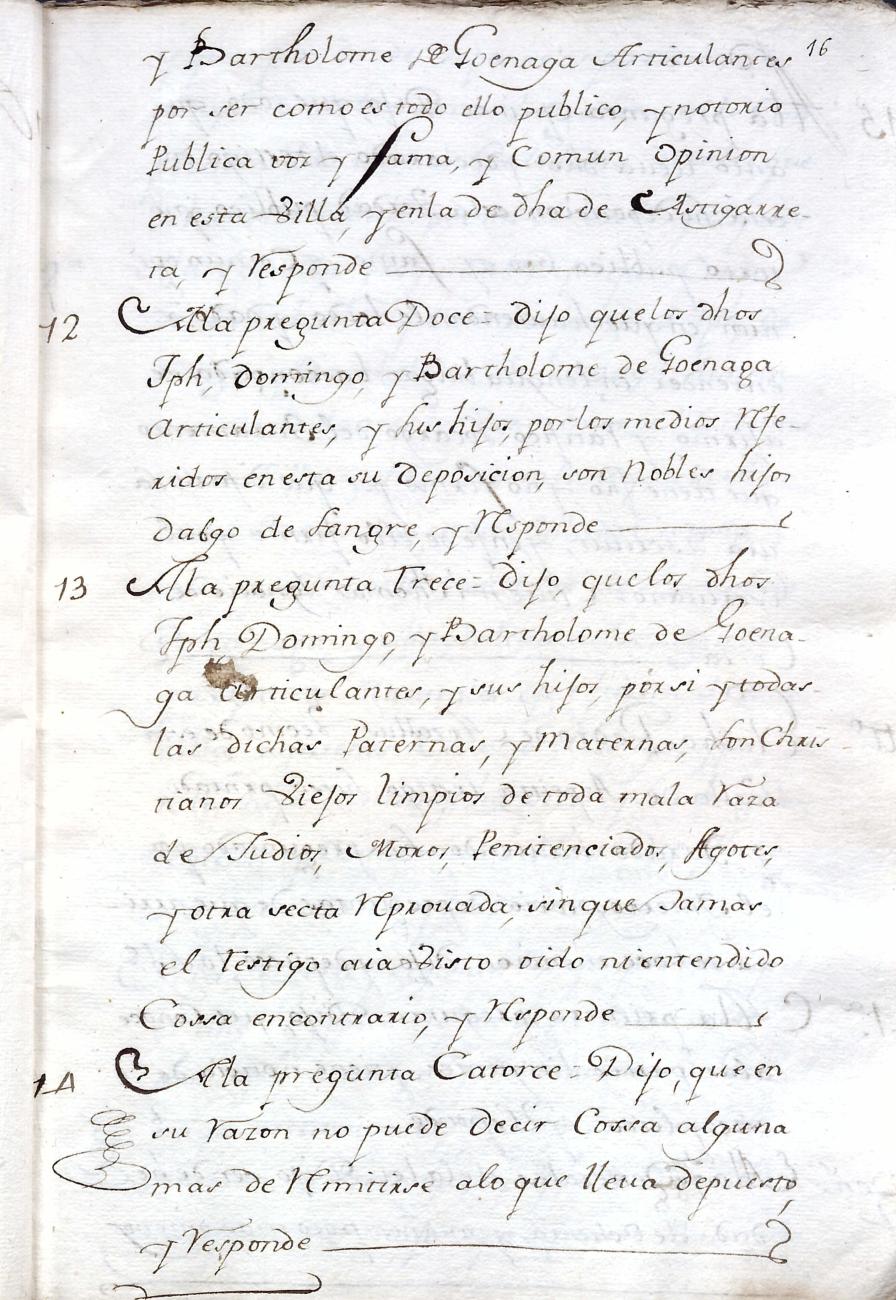 16
y Bartholome de Goenaga Articulantes
por ser como es todo ello publico, y notorio
Publica voz y fama, y Comun Opinion
en esta Villa, y en la de dha de Astigarre-
ta, y Responde
12 A la pregunta Doce = Dijo que los dhos
Jph, Domingo, y Bartholome de Goenaga
Articulantes, y sus hijos, por los medios Refe-
ridos en esta su Deposicion, son Nobles hijos
Dalgo de sangre, y Responde
13 A la pregunta Trece = Dijo, que los dhos
Jph Domingo, y Bartholome de Goena-
ga Articulantes, y sus hijos, por si y todas
las dichas Paternas, y Maternas, son Chris-
tianos Viejos limpios de toda mala Raza
de Judios, Moros, Penitenciados, Agotes,
y otra secta Reprovada, sin que Jamas
el testigo aia Visto oido ni entendido
Cossa encontrario, y Responde
14 A la pregunta Catorce = Dijo, que en
su Razon no puede decir Cossa alguna
mas de Remitirse alo que lleva depuesto,
y Responde